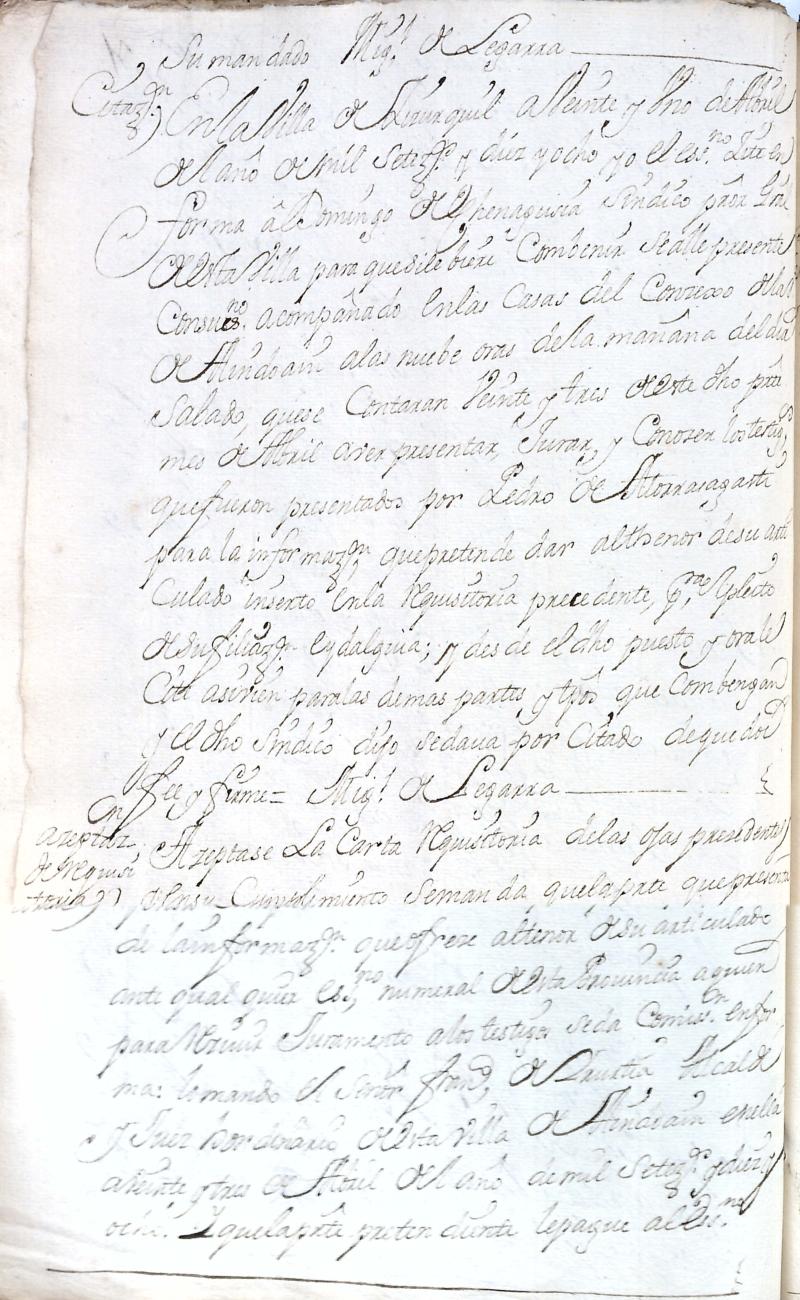 Su mandado Migl. de Legarra
Citazon
En la Villa de Lizurquil a Veinte y Uno de Abril
del año de mil Setezs. y diez y ocho yo el essno. Zite en
forma â Domingo de Echenagusia Sindico pror. Gral
de esta Villa para que si le biere Combenir se alle presente
Con su essno. acompañado en las Casas del Conzexo de la Va
de Alindoain a las nuebe oras de la mañana del dia
Salado, que se Contaran Veinte y tres de este dho prte
mes de Abril a ver presentar, Jurar, y Conozer los testigos
que fueron presentados por Pedro de Atorrasagasti
para la informazon, que pretende dar al thenor de su arti
Culado inserto en la Requisitoria precedente, pra el pleito
de su filiazon. e ydalguia; y desde el dho puesto y ora le
Cite asivien para las demas partes y tpos que Combengan
y el dho Sindico dijo se daua por Citado de que doi
fee y firme = Migl. de Legarra
azeptazon
de Requisi
toria
Azeptase La Carta Requisitoria de las ojas presedentes
y en su Cumplimiento se manda, que la prte que presenta
de la informazon. que ofreze al tenor de su articulado
ante qual quier essno. numeral de esta Prouincia a quien
para Reziuir Juramento a los testigos se da Comison. en for
ma: lo mando el señor franco. de Alcalde
y Juez hordinario de esta Villa de Alindoain en ella
a Veinte y tres de Abril del año de mil Setezs. y diez y
ocho. Y que la prte pretendiente le pague al Essno.